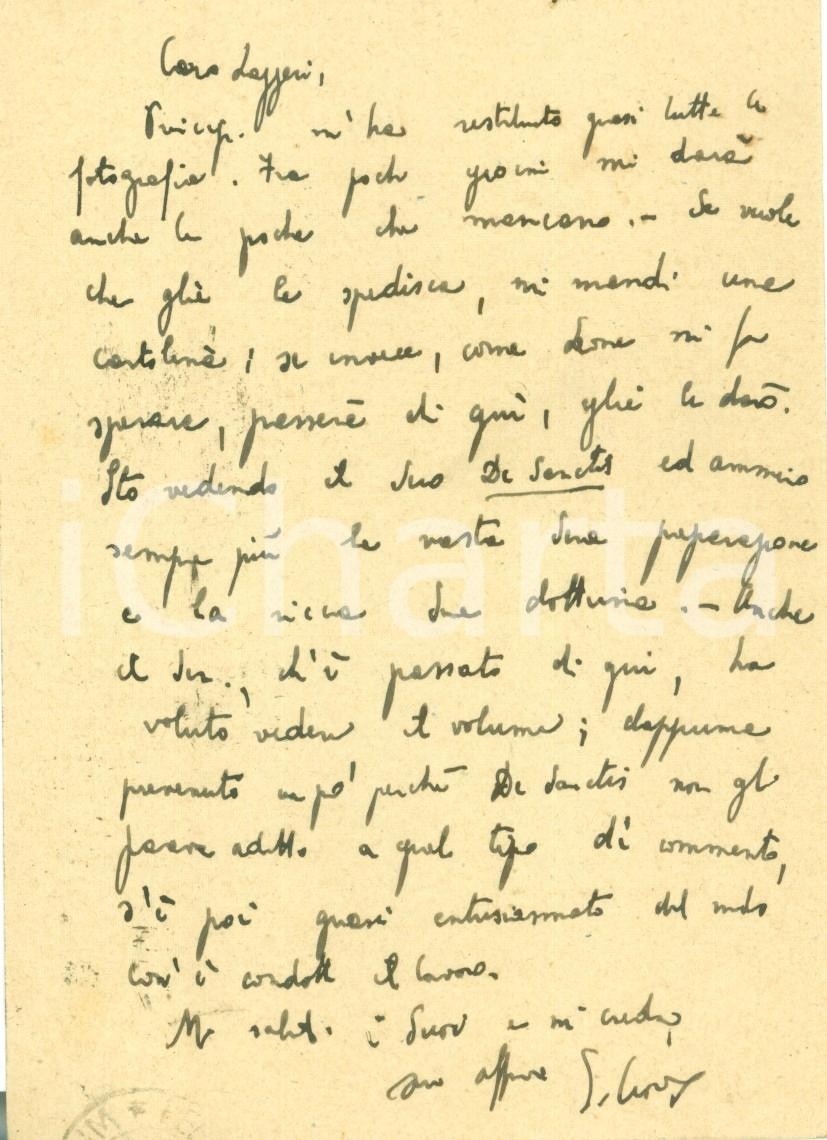 Caro Lazzeri,
Princip. m'ha restituito quasi tutte le
fotografie. Fra pochi giorni mi darà
anche le poche che mancano.- Se vuole
che gliè le spedisca, mi mandi una
cartolina; se invece, come Leone mi fa
sperare, passerà di qui, gliele darò.
Sto vedendo il Suo De Sanctis ed ammiro
sempre più la vasta Sua preparazione
e la ricca Sua dottrina.- Anche
il , ch'è passato di qui, ha
voluto vedere il volume; dapprima
prevenuto un po' perché De Sanctis non gli
pareva adatto a quel tipo di commento,
s'è poi quasi entusiasmato del modo
com'è condotto il lavoro.
Mi saluti i Suoi e mi creda,
suo affmo
iCharta